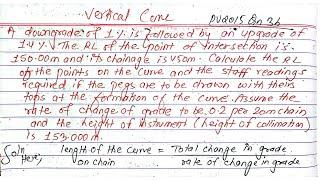 Vertical Curve
PU2015 Qn 3b
A downgrade of 1% is followed by an upgrade of
1.4%. The RL of the point of intersection is
150.00m and its chainage is 450m. Calculate the RL
of the points on the curve and the staff readings
required if the pegs are to be drawn with their
tops at the formation of the curve. Assume the
rate of change of grade to be 0.2 per 20m chain
and the height of instrument (height of collimation)
is 153.000m.
Soln
Here, length of the curve = Total change in grade.
on chain rate of change in grade